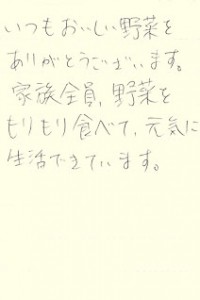 いつもおいしい野菜を
ありがとうございます。
家族全員、野菜を
もりもり食べて、元気に
生活できています。